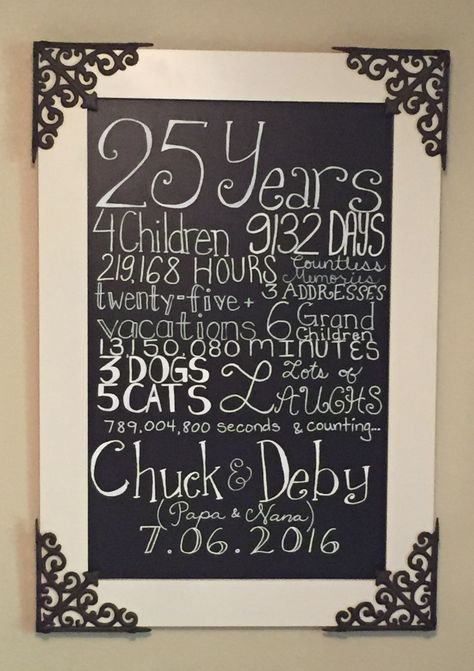 25 Years
4 Children 9132 DAYS
219,168 HOURS Countless Memories
twenty-five + 3 ADDRESSES
vacations 6 Grand Children
13,150,080 MINUTES
3 DOGS Lots of
5 CATS LAUGHS
789,004,800 seconds & counting...
Chuck & Deby
(Papa & Nana)
7.06.2016